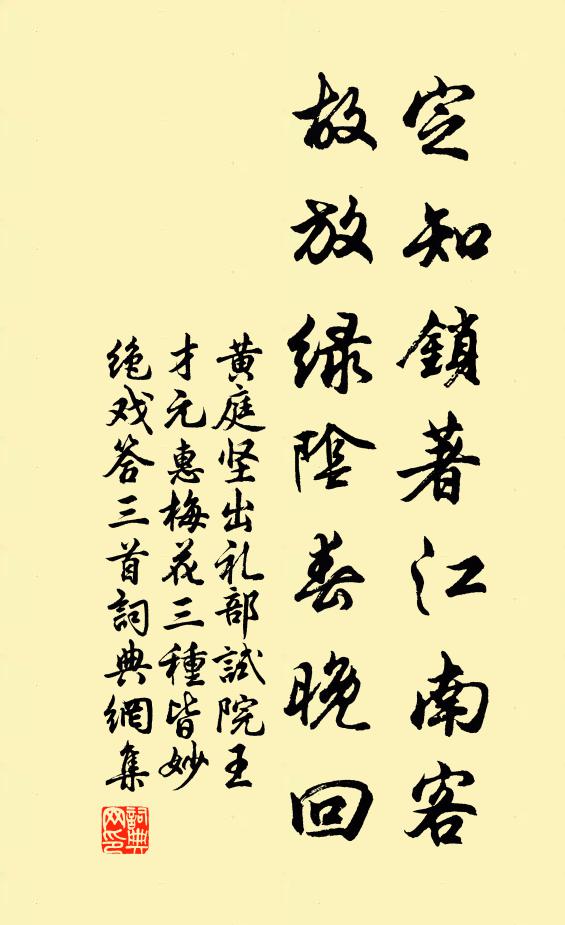 定知鎖著江南客
故放緑陰春晚回
黄庭坚出礼部試院王
才元惠梅花三種皆妙
绝戏答三首詞典網集
詞典网印